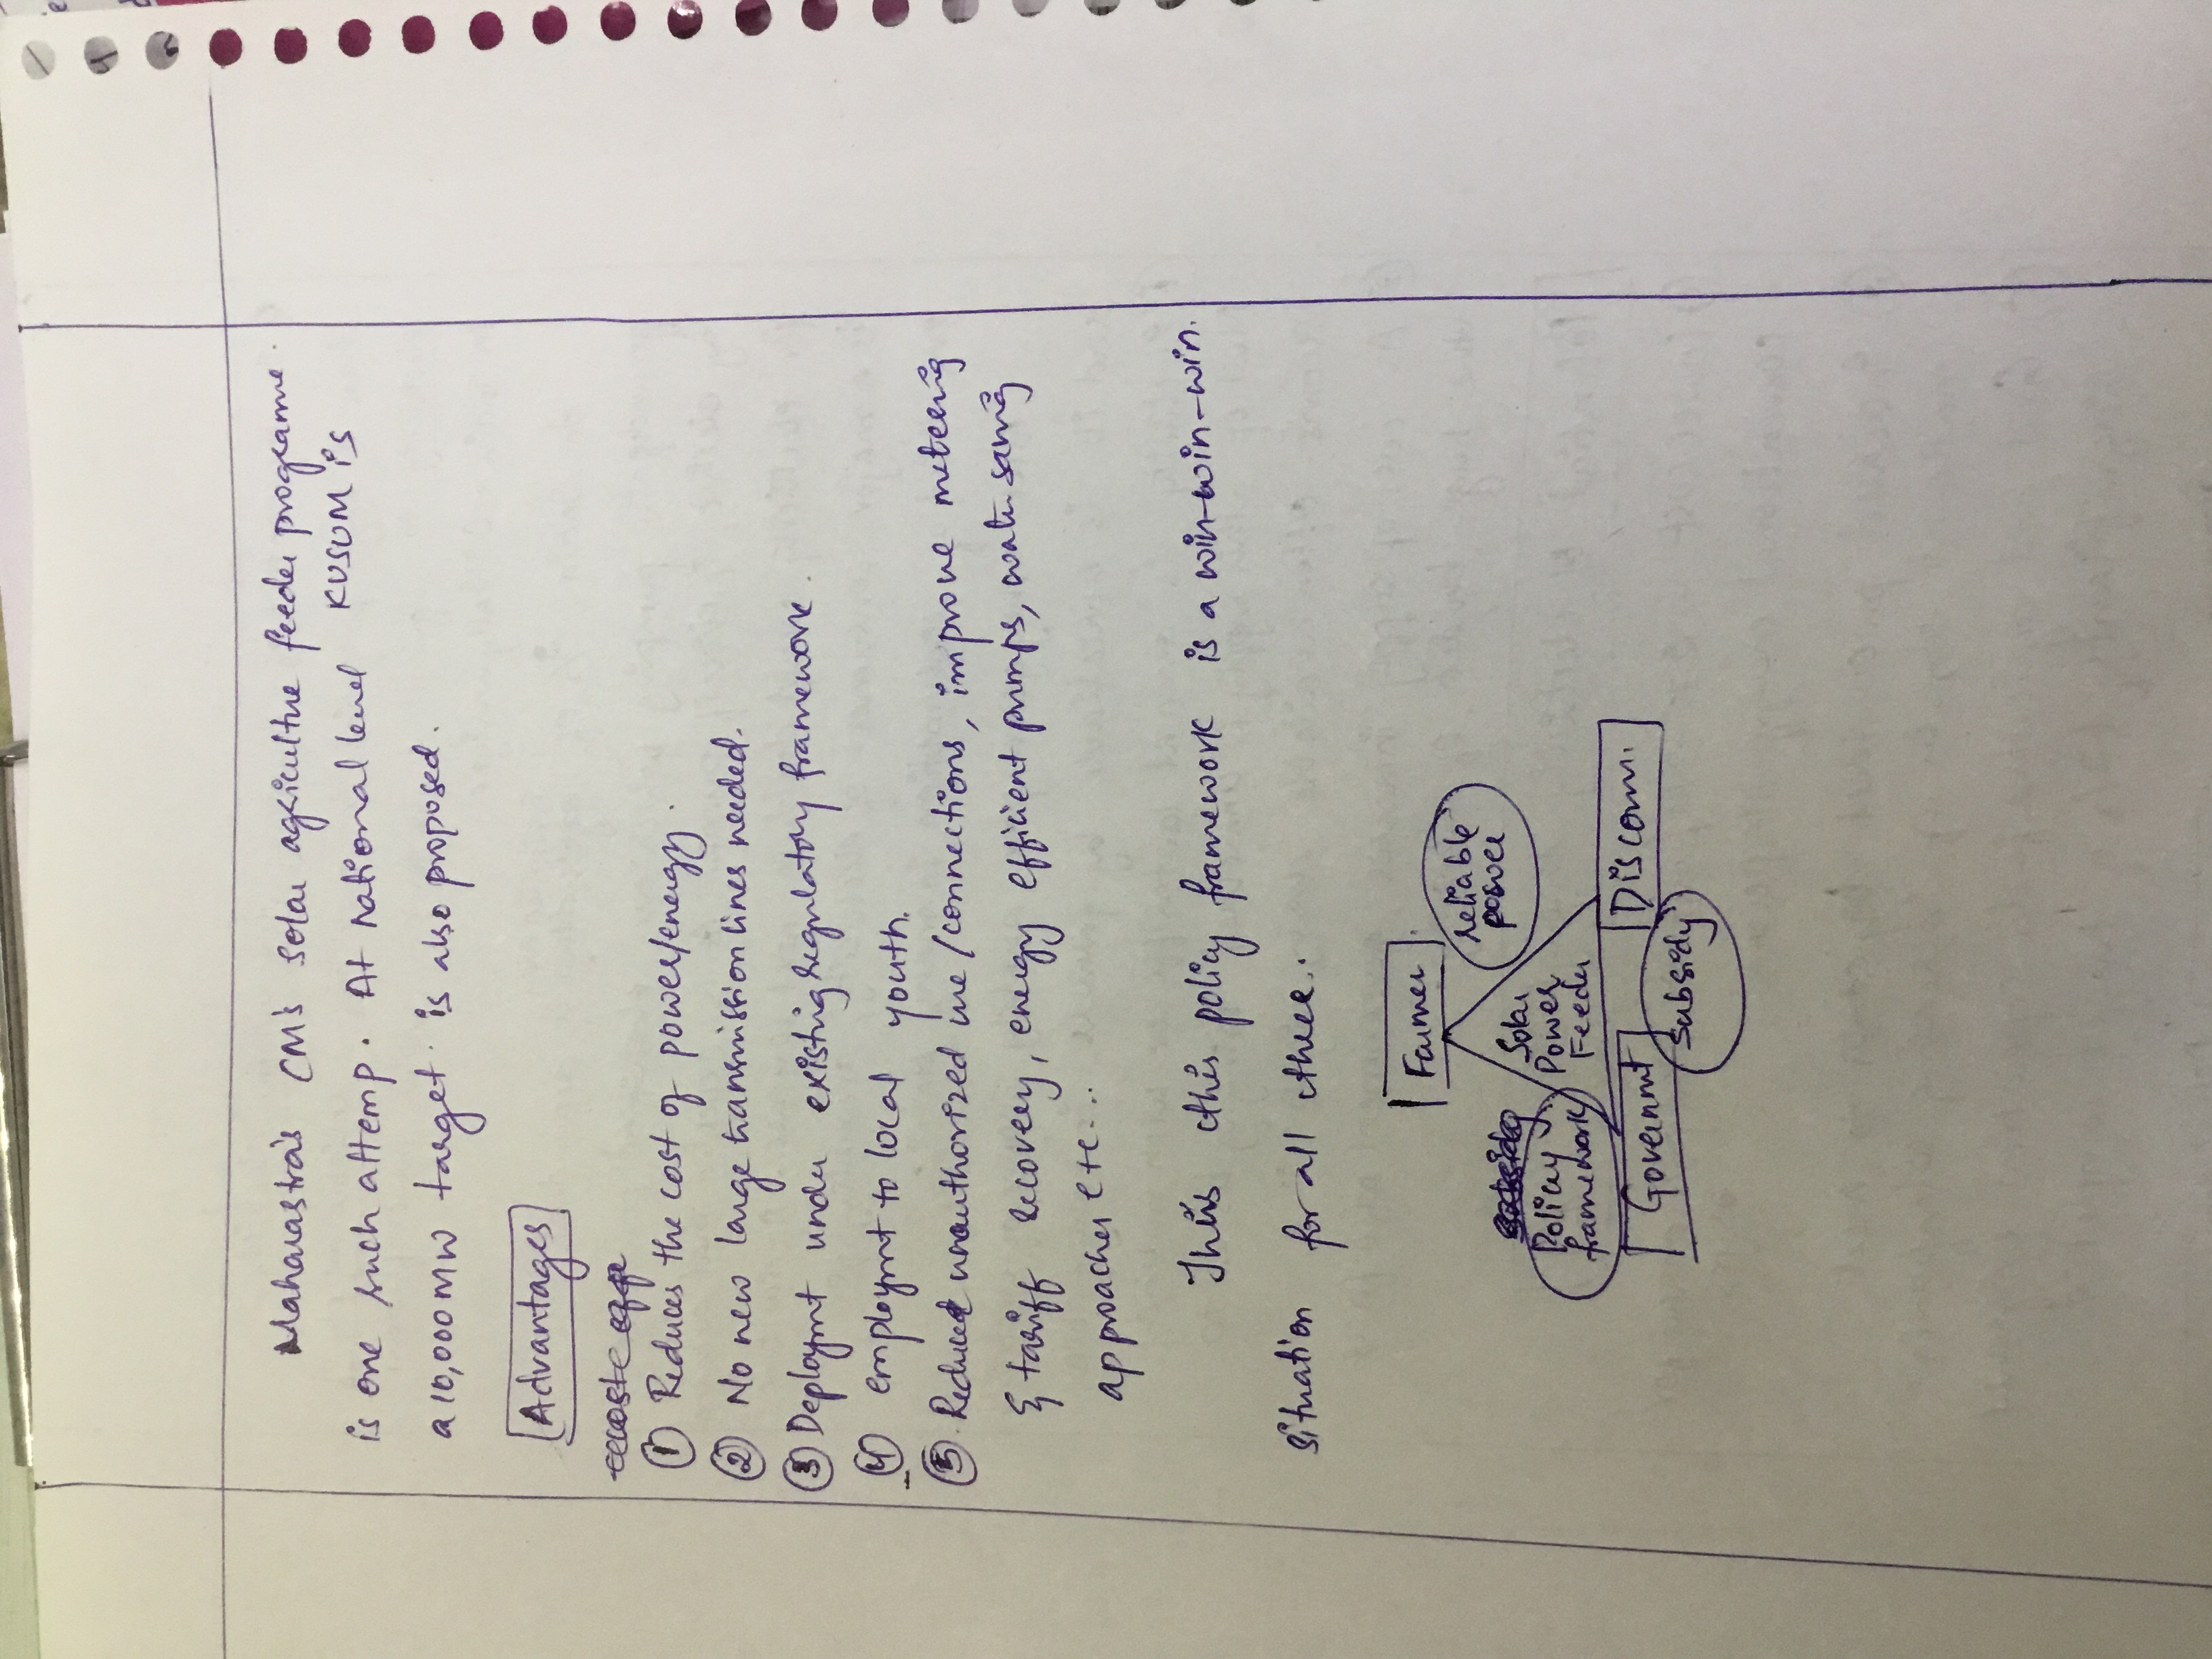 Maharastra's CM's solar agriculture feeder programe.
is one such attemp. At national level KUSUM is
a 10,000 MW target is also proposed.
Advantages
① Reduces the cost of power/energy.
② No new large transmission lines needed.
③ Deploymt under existing regulatory framework.
④ employmt to local youth.
⑤ Reduced unauthorized use/connections, improve metering
& tariff recovery, energy efficient pumps, water saving
approaches etc...
Thus this policy framework is a win-win-win.
situation for all three.
Farmer
reliable
power
Policy
framework
Solar
Power
Feeder
Governmt
Discom.
Subsidy